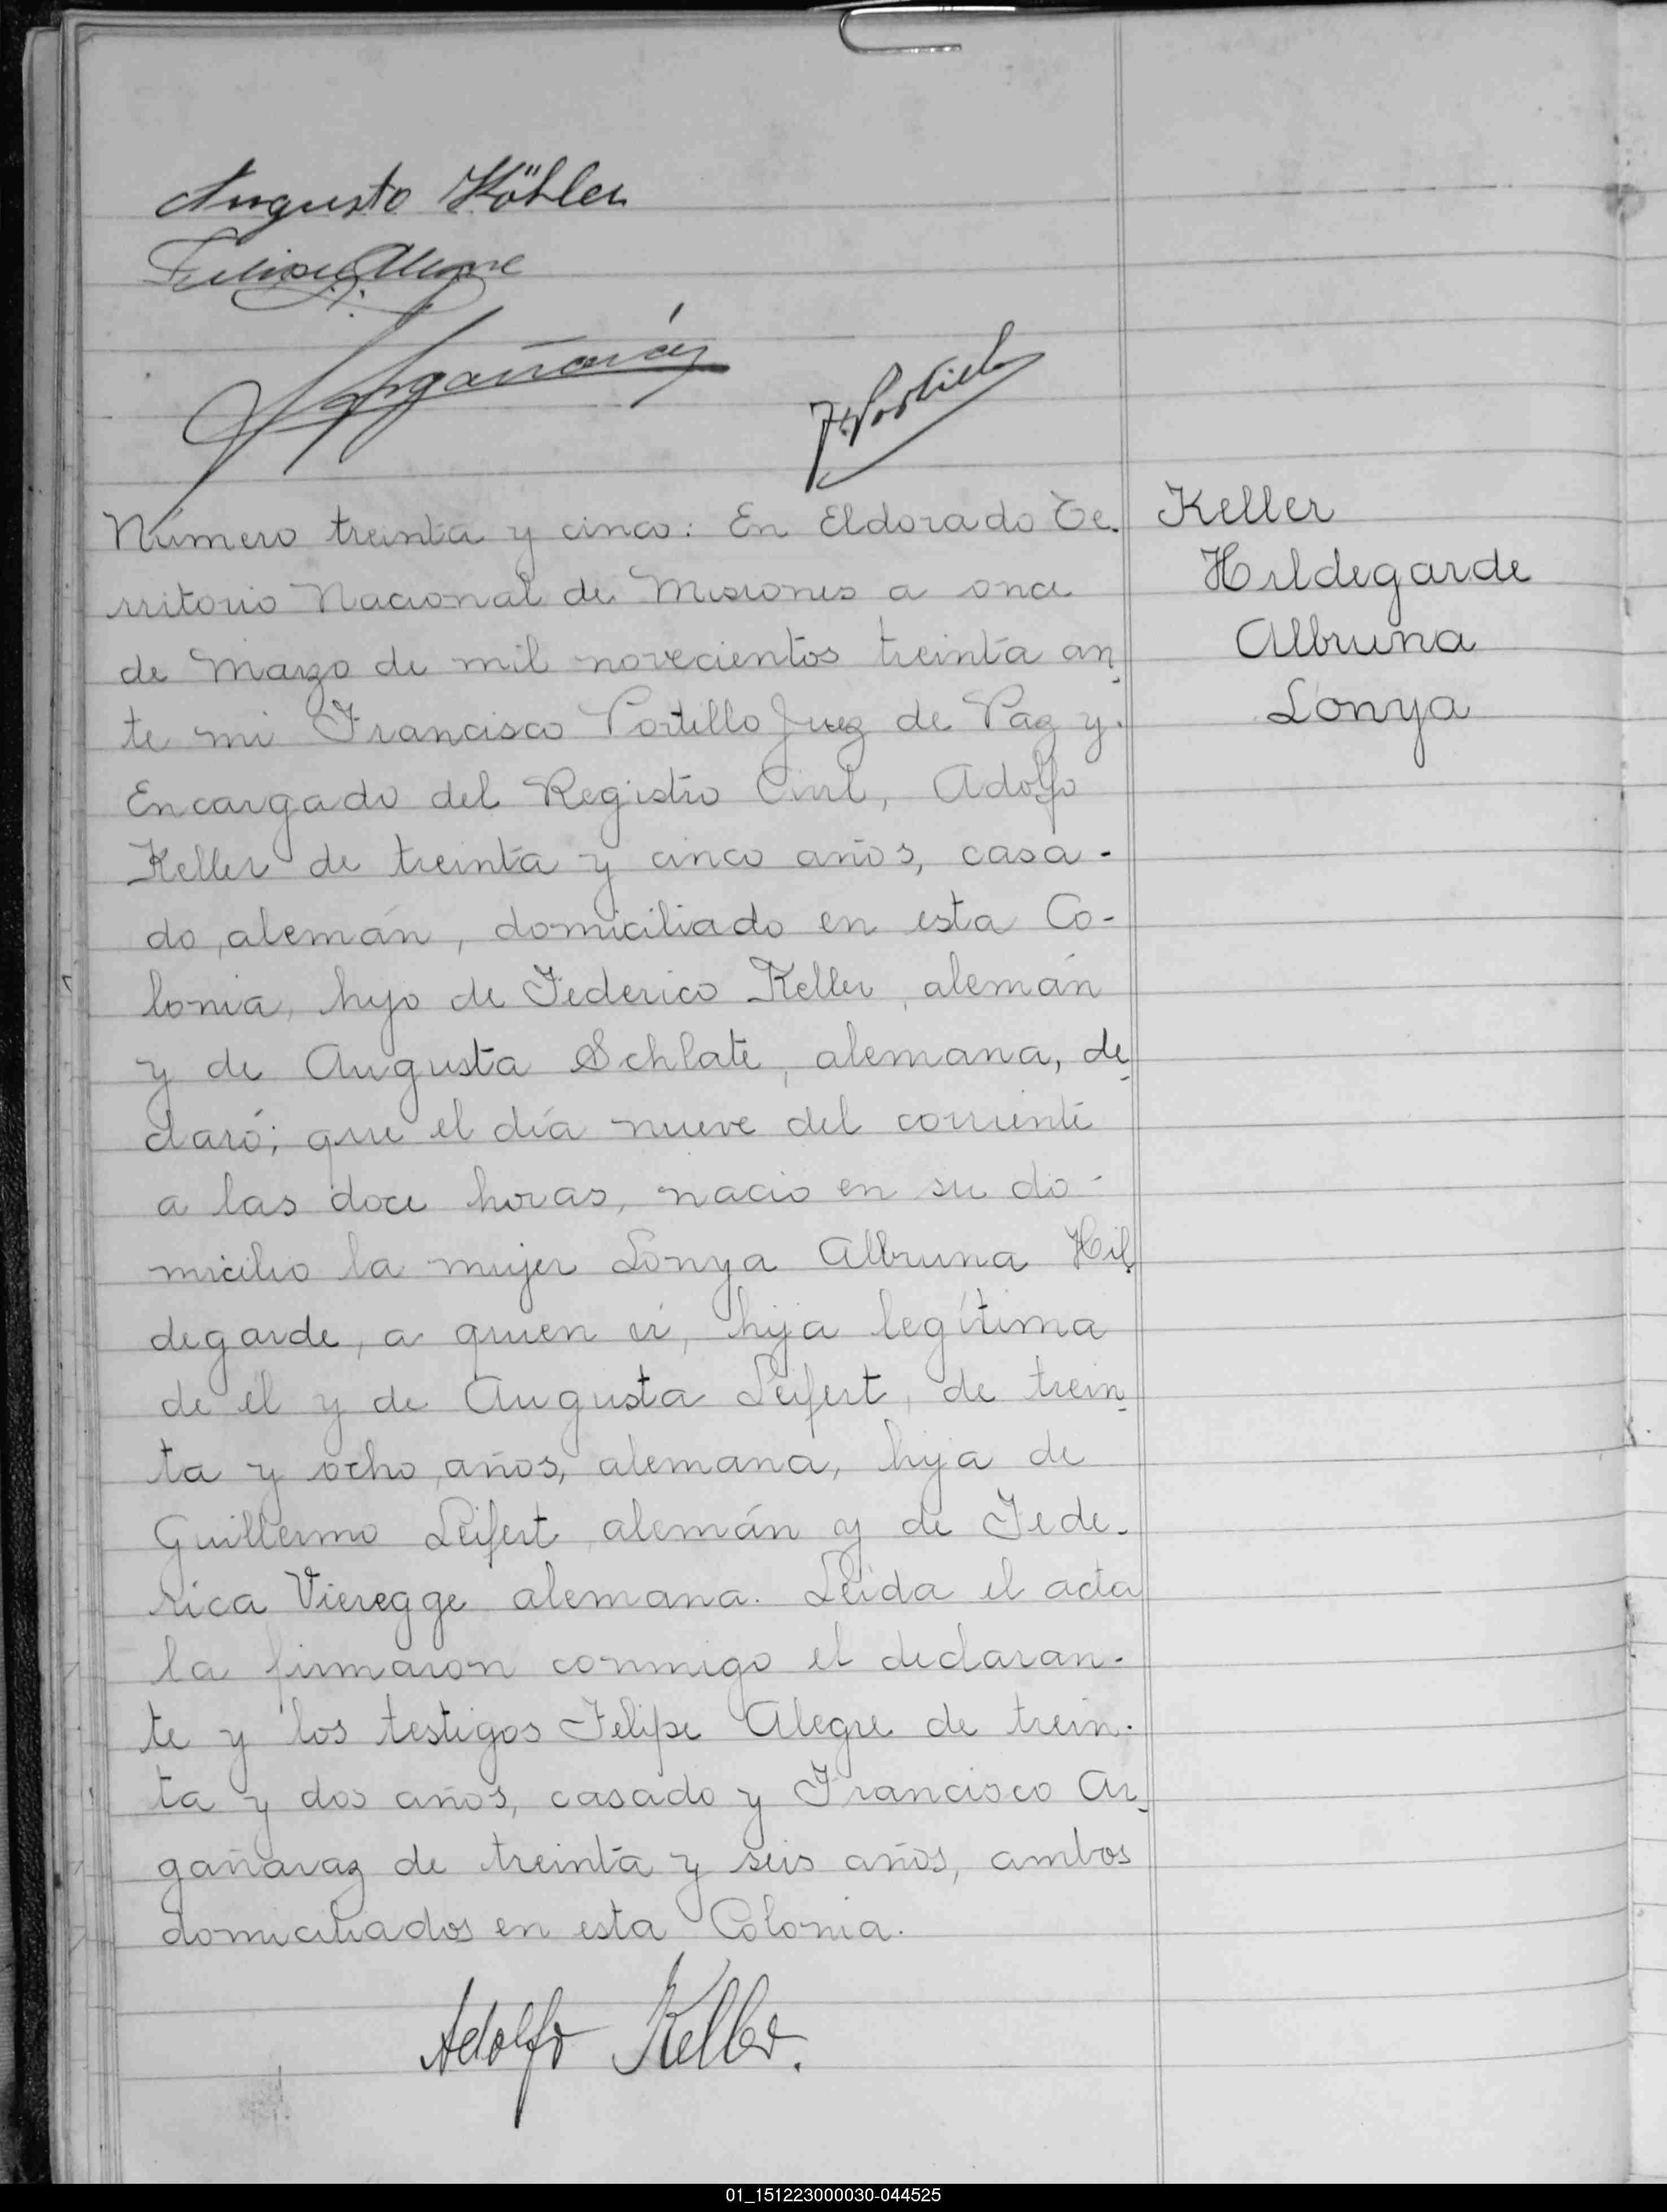 Augusto Köhler
Felipe Alegre
Argañaráz
F. Portillo
Número treinta y cinco: En Eldorado Te-
rritorio Nacional de Misiones a once
de Marzo de mil novecientos treinta an
te mi Francisco Portillo Juez de Paz y
Encargado del Registro Civil, Adolfo
Keller de treinta y cinco años, casa-
do, alemán, domiciliado en esta Co-
lonia, hijo de Federico Keller, alemán
y de Augusta Schlate, alemana, de
claró; que el día nueve del corriente
a las doce horas, nacio en su do-
micilio la mujer Sonya Albruna Hil
degarde, a quien ví, hija legítima
de él y de Augusta Leifert, de trein
ta y ocho años, alemana, hija de
Guillermo Leifert, alemán y de Fede-
rica Vieregge alemana. Leida el acta
la firmaron conmigo el declaran-
te y los testigos Felipe Alegre de trein-
ta y dos años, casado y Francisco Ar
gañaraz de treinta y seis años, ambos
domiciliados en esta Colonia.
Adolfo Keller.
Keller
Hildegarde
Albruna
Sonya
01_151223000030-044525